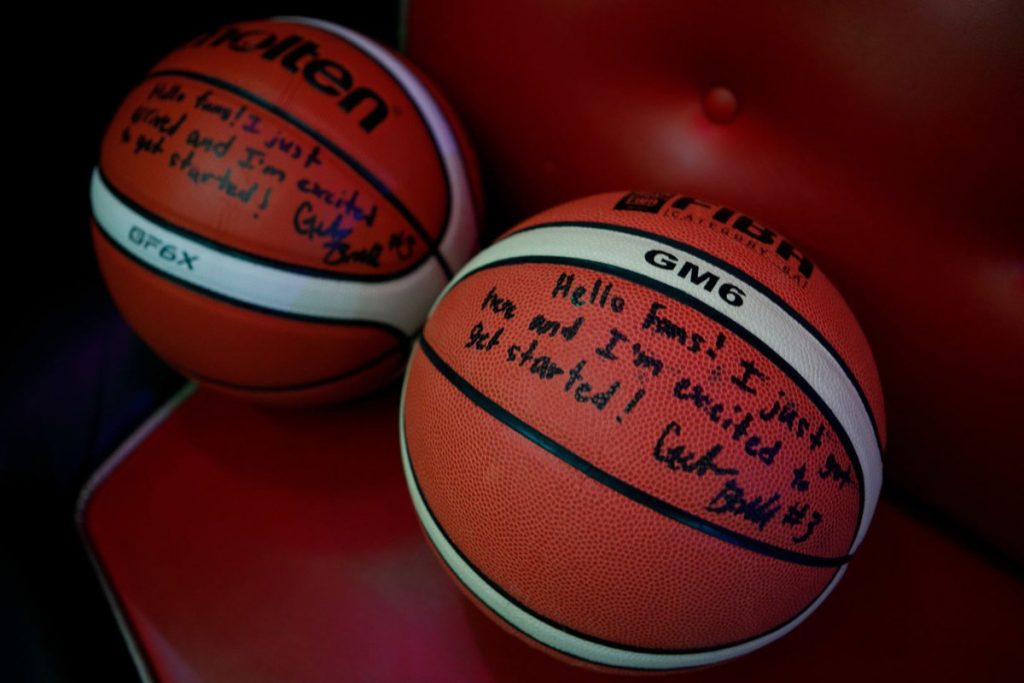 molten
Hello Fans! I just
arrived and I'm excited
to get started!
#3
GF6X
FIBA
CATEGORY
GM6
Hello Fans! I just got
here and I'm excited to
get started!
#3